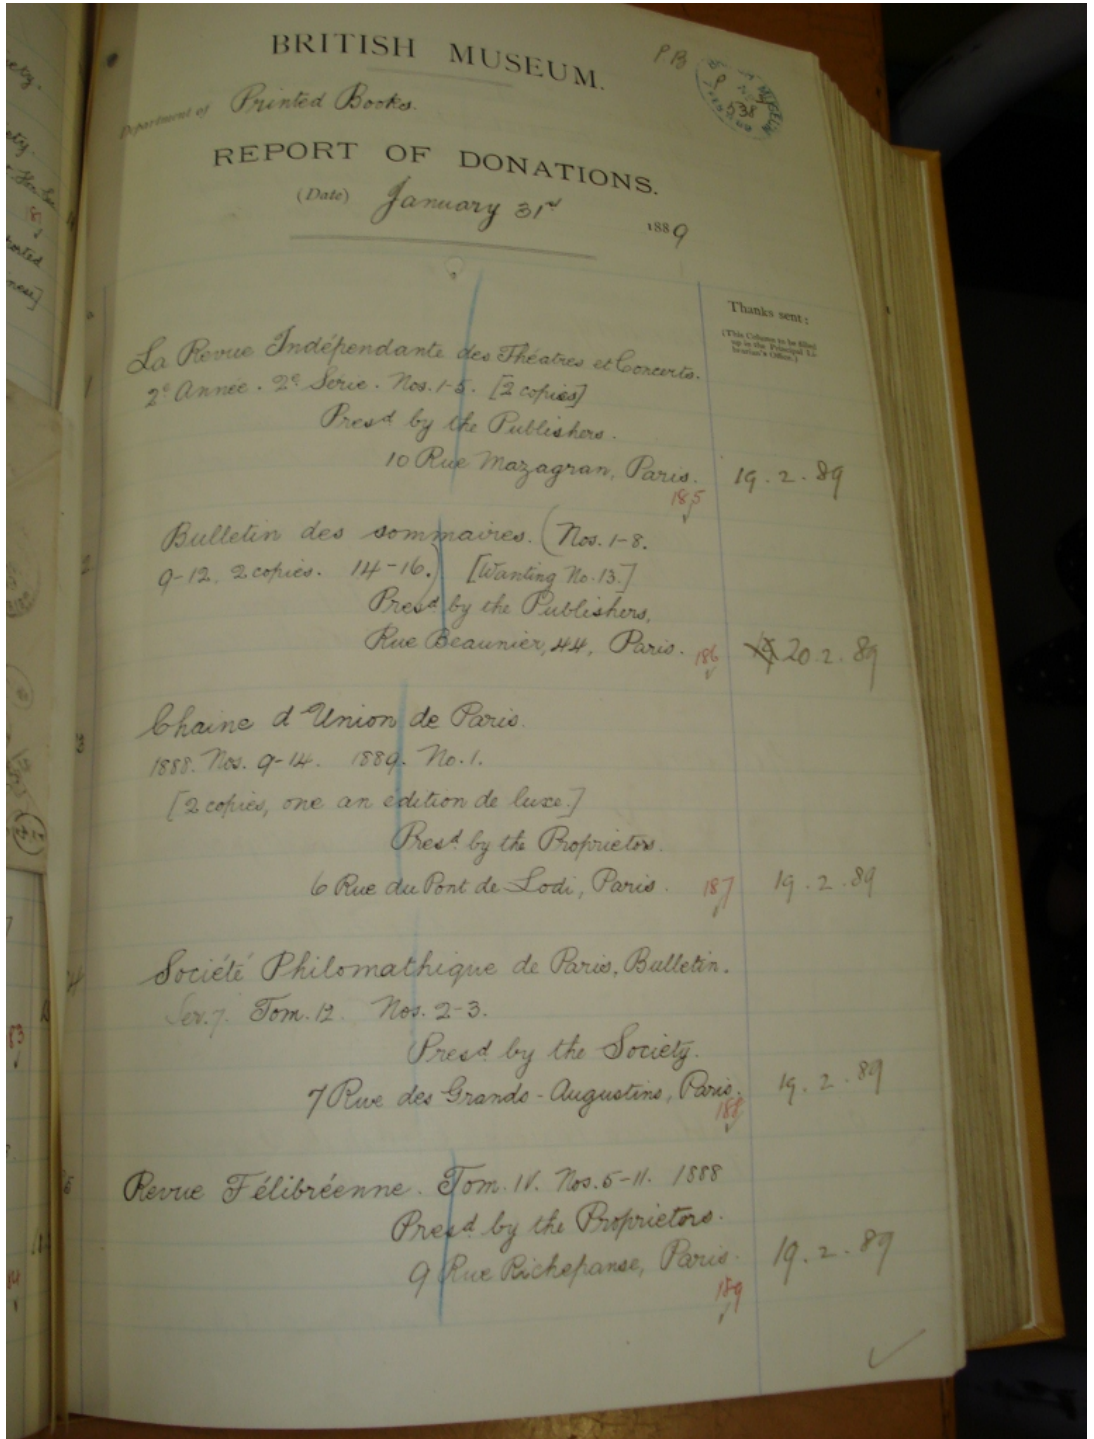 BRITISH MUSEUM.
P.B
538
Department of Printed Books.
REPORT OF DONATIONS.
(Date) January 31st 1889
Thanks sent:
(This Column to be filled
up in the Principal Li-
brarian's Office.)
1
La Revue Indépendante des Théatres et Concerts.
2e Année. 2e Série. Nos. 1-5. [2 copies]
Presd by the Publishers.
10 Rue Mazagran, Paris. 19.2.89
185
2
Bulletin des sommaires. (Nos. 1-8.
9-12. 2 copies. 14-16.) [Wanting No. 13.]
Presd by the Publishers,
Rue Beaunier, 44, Paris. 186 19 20.2.89
3
Chaine d'Union de Paris.
1888. Nos. 9-14. 1889. No. 1.
[2 copies, one an edition de luxe.]
Presd by the Proprietors.
6 Rue du Pont de Lodi, Paris. 187 19.2.89
4
Société Philomathique de Paris, Bulletin.
Ser. 7. Tom. 12. Nos. 2-3.
Presd by the Society.
7 Rue des Grands-Augustins, Paris. 19.2.89
188
5
Revue Félibréenne. Tom. IV. Nos. 5-11. 1888
Presd by the Proprietors.
9 Rue Richepanse, Paris. 19.2.89
189